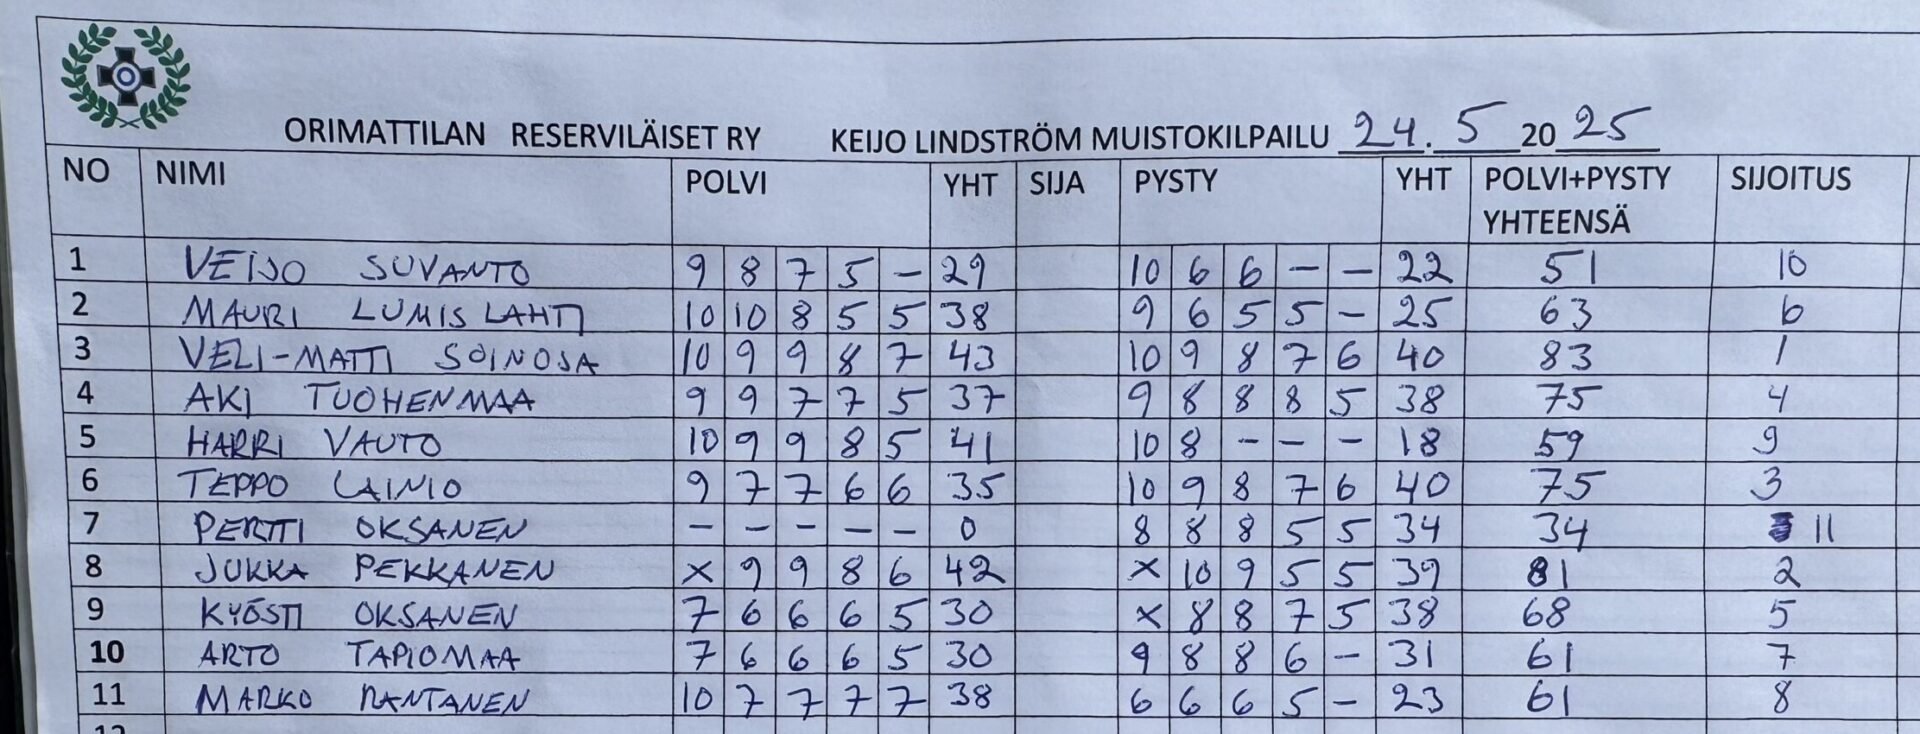 ORIMATTILAN RESERVILÄISET RY KEIJO LINDSTRÖM MUISTOKILPAILU 24.5 2025
NO NIMI POLVI YHT SIJA PYSTY YHT POLVI+PYSTY YHTEENSÄ SIJOITUS
1 VEIJO SUVANTO 9 8 7 5 – 29 10 6 6 – – 22 51 10
2 MAURI LUMISLAHTI 10 10 8 5 5 38 9 6 5 5 – 25 63 6
3 VELI-MATTI SOINOSA 10 9 9 8 7 43 10 9 8 7 6 40 83 1
4 AKI TUOHENMAA 9 9 7 7 5 37 9 8 8 8 5 38 75 4
5 HARRI VAUTO 10 9 9 8 5 41 10 8 – – – 18 59 9
6 TEPPO LAINIO 9 7 7 6 6 35 10 9 8 7 6 40 75 3
7 PERTTI OKSANEN – – – – – 0 8 8 8 5 5 34 34 11
8 JUKKA PEKKANEN X 9 9 8 6 42 X 10 9 5 5 39 81 2
9 KYÖSTI OKSANEN 7 6 6 6 5 30 X 8 8 7 5 38 68 5
10 ARTO TAPIOMAA 7 6 6 6 5 30 9 8 8 6 – 31 61 7
11 MARKO RANTANEN 10 7 7 7 7 38 6 6 6 5 – 23 61 8